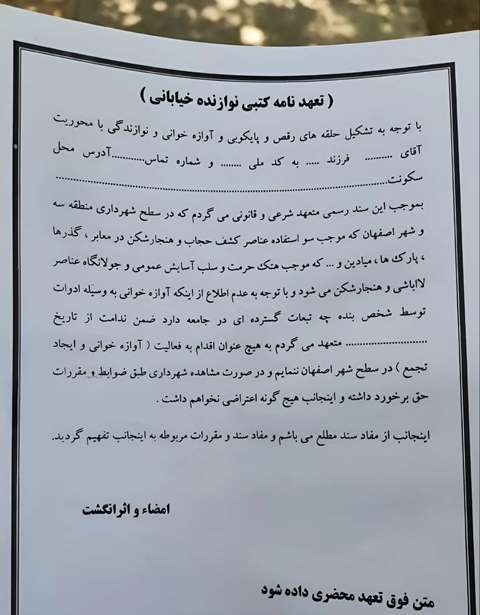 ( تعهد نامه کتبی نوازنده خیابانی )
با توجه به تشکیل حلقه های رقص و پایکوبی و آوازه خوانی و نوازندگی با محوریت
آقای .......... فرزند ..... به کد ملی ........ و شماره تماس............آدرس محل
سکونت................................................................................
بموجب این سند رسمی متعهد شرعی و قانونی می گردم که در سطح شهرداری منطقه سه
و شهر اصفهان که موجب سو استفاده عناصر کشف حجاب و هنجارشکن در معابر ، گذرها
، پارک ها ، میادین و ... که موجب هتک حرمت و سلب آسایش عمومی و جولانگاه عناصر
لاابالشی و هنجارشکن می شود و با توجه به عدم اطلاع از اینکه آوازه خوانی به وسیله ادوات
توسط شخص بنده چه تبعات گسترده ای در جامعه دارد ضمن ندامت از تاریخ
........................ متعهد می گردم به هیچ عنوان اقدام به فعالیت ( آوازه خوانی و ایجاد
تجمع ) در سطح شهر اصفهان ننمایم و در صورت مشاهده شهرداری طبق ضوابط و مقررات
حق برخورد داشته و اینجانب هیچ گونه اعتراضی نخواهم داشت .
اینجانب از مفاد سند مطلع می باشم و مفاد سند و مقررات مربوطه به اینجانب تفهیم گردید.
امضاء و اثرانگشت
متن فوق تعهد محضری داده شود